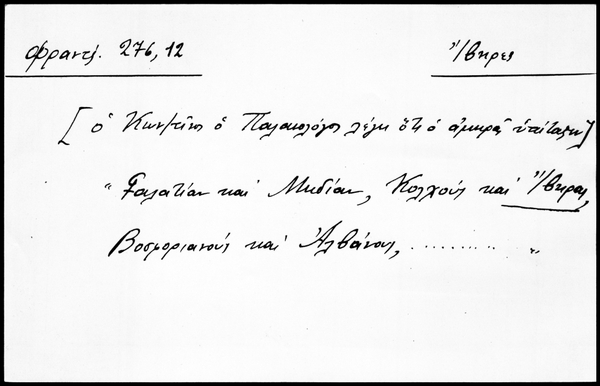 Φραντζ. 276, 12 Ἴβηρες
[ὁ Κων/τῖνος ὁ Παλαιολόγος λέγει ὅτι ὁ ἀμηρᾶς ὑπέταξεν]
"Γαλατίαν καὶ Μηδίαν, Κολχοὺς καὶ Ἴβηρας,
Βοσποριανοὺς καὶ Ἀλβάνους, .......... "